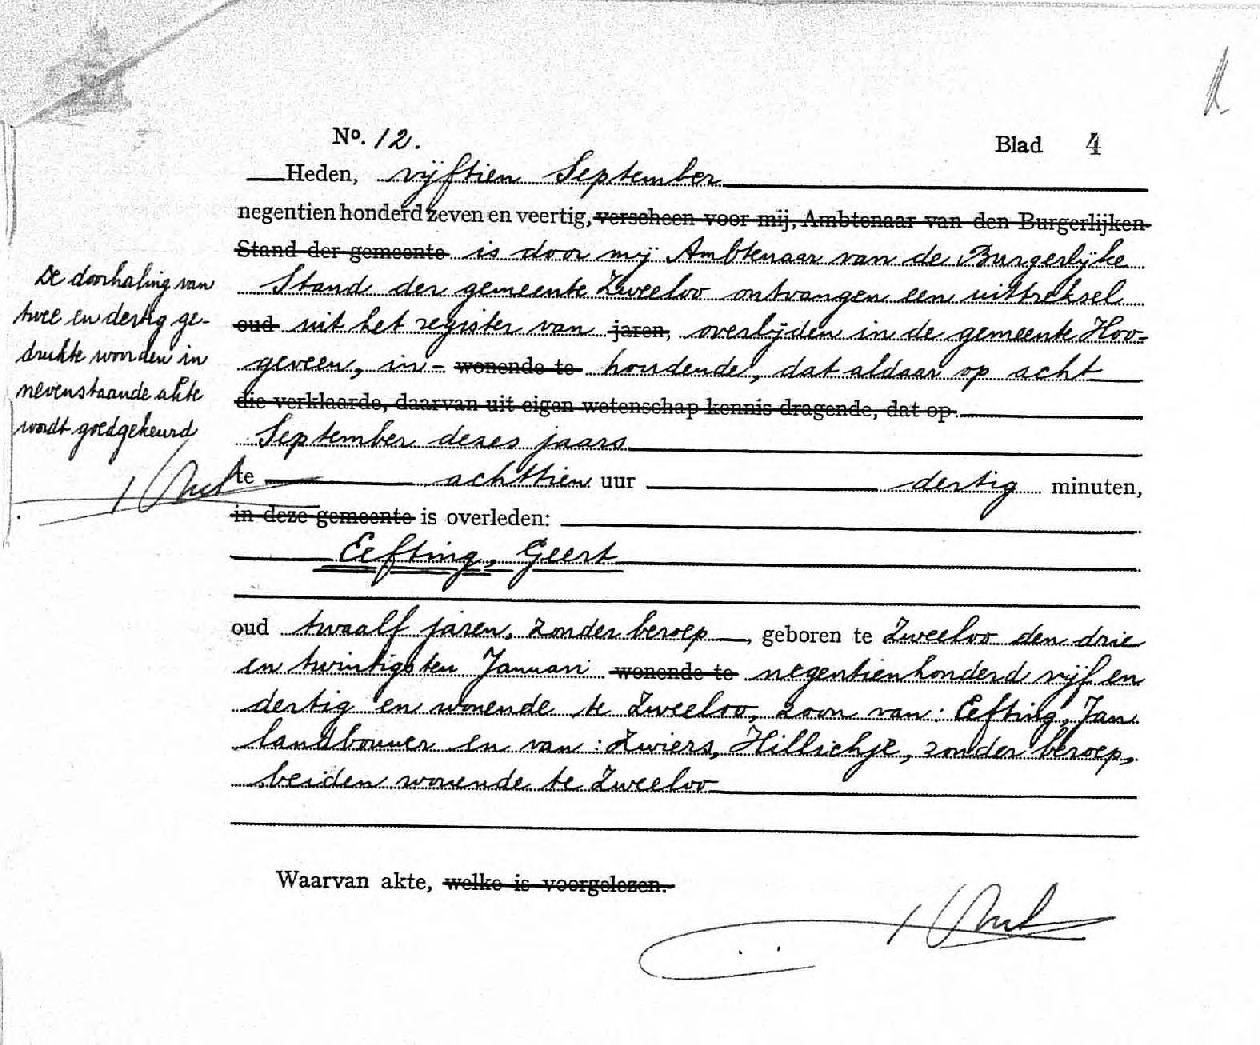 No. 12.
Blad 4
Heden, vijftien September
negentien honderd zeven en veertig, verscheen voor mij, Ambtenaar van den Burgerlijken
Stand der gemeente is door mij Ambtenaar van de Burgerlijke
Stand der gemeente Zweeloo ontvangen een uittreksel
oud uit het register van jaren, overlijden in de gemeente Hoo-
geveen, in- wonende te houdende, dat aldaar op acht
die verklaarde, daarvan uit eigen wetenschap kennis dragende, dat op
September dezes jaars
te achttien uur dertig minuten,
in deze gemeente is overleden:
Eefting, Geert
oud twaalf jaren, zonder beroep, geboren te Zweeloo den drie
en twintigsten Januari wonende te negentienhonderd vijf en
dertig en wonende te Zweeloo, zoon van: Eefting, Jan
landbouwer en van: Zwiers, Hillichje, zonder beroep,
beiden wonende te Zweeloo
Waarvan akte, welke is voorgelezen.
De doorhaling van
twee en dertig ge-
drukte woorden in
nevenstaande akte
wordt goedgekeurd